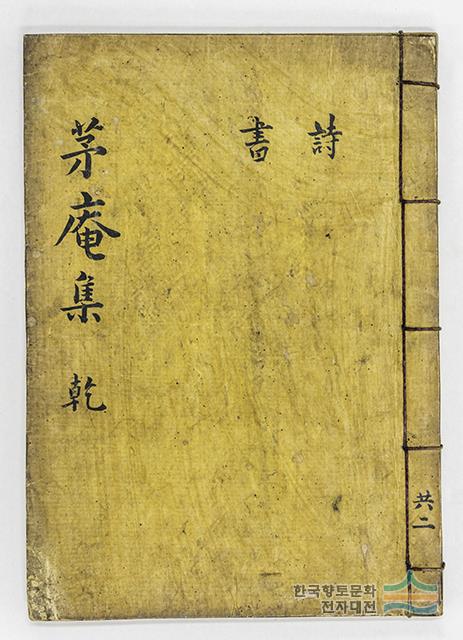 茅庵集 乾
詩
書
共二
한국향토문화
전자대전